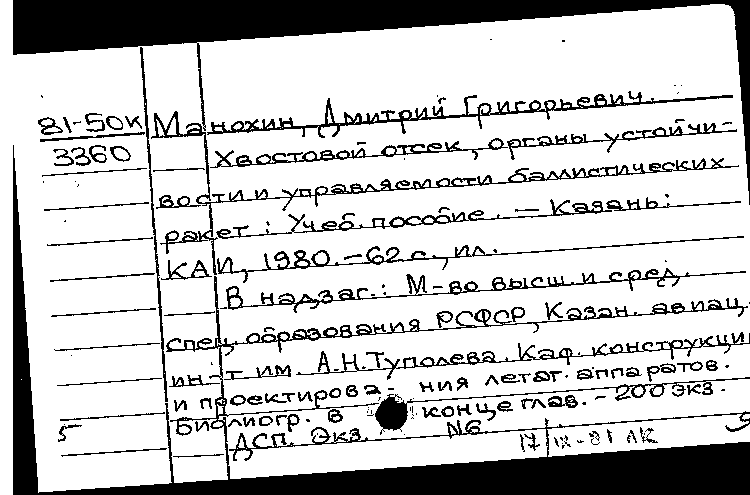 81-50К Манохин, Дмитрий Григорьевич.
3360 Хвостовой отсек, органы устойчи-
вости и управляемости баллистических
ракет: Учеб. пособие. — Казань:
КАИ, 1980. — 62 с., ил.
В надзаг.: М-во высш. и сред.
спец. образования РСФСР, Казан. авиац.
ин-т им. А.Н. Туполева. Каф. конструкции
и проектирова- ния летат. аппаратов.
Библиогр. в конце глав. - 200 экз.
5 ДСП. Экз. №
17/IX-81 ЛК